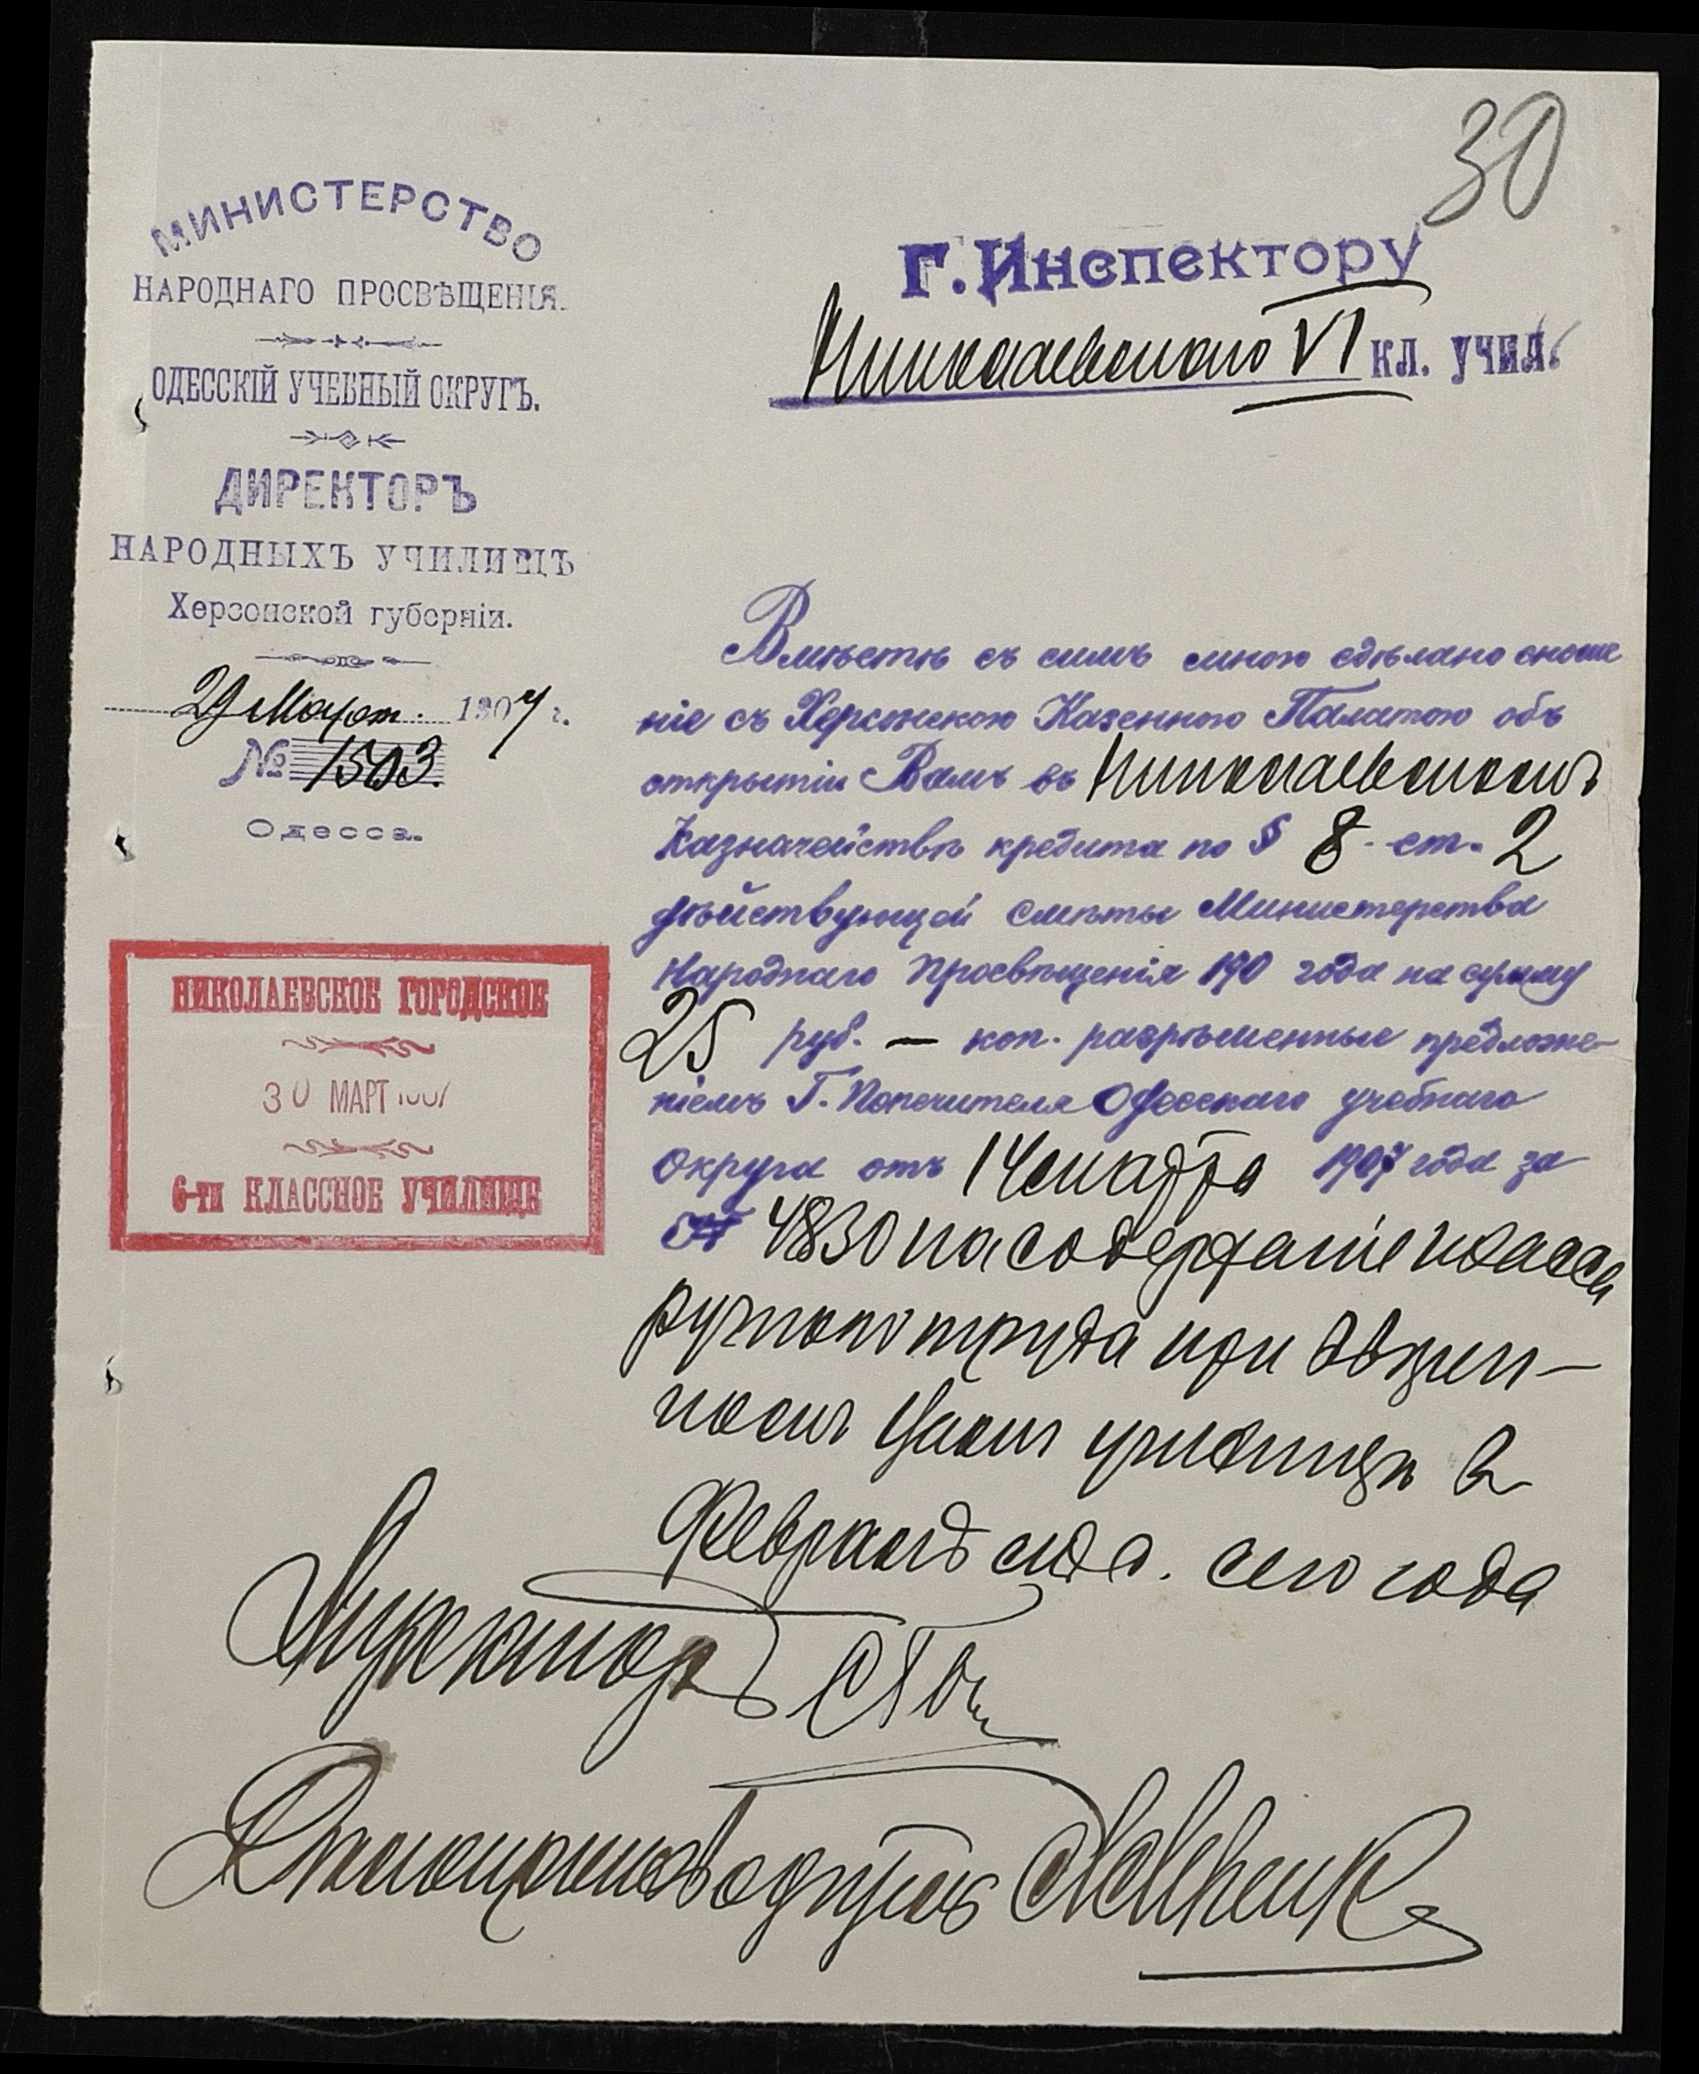 30
МИНИСТЕРСТВО
НАРОДНАГО ПРОСВѢЩЕНІЯ.
ОДЕССКІЙ УЧЕБНЫЙ ОКРУГЪ.
ДИРЕКТОРЪ
НАРОДНЫХЪ УЧИЛИЩЪ
Херсонской губерніи.
29 Март. 1907 г.
№ 1503
Одесса.
Г. Инспектору
Николаевскаго VI кл. учил.
НИКОЛАЕВСКОЕ ГОРОДСКОЕ
30 МАРТ 1907
6-ти КЛАССНОЕ УЧИЛИЩЕ
Вмѣстѣ съ симъ мною сдѣлано сноше
ніе съ Херсонскою Казенною Палатою объ
открытіи Вамъ въ Николаевскомъ
Казначействѣ кредита по § 8 ст. 2
дѣйствующей смѣты Министерства
Народнаго Просвѣщенія 190 года на сумму
25 руб. — коп. разрѣшенные предложе-
ніемъ Г. Попечителя Одесскаго учебнаго
Округа отъ 14 марта 1907 года за
№ 4830 на содержаніе класса
ручного труда при ввѣрен-
номъ Вамъ училищѣ въ
февралѣ м-цѣ сего года
Директоръ
Дѣлопроизводитель